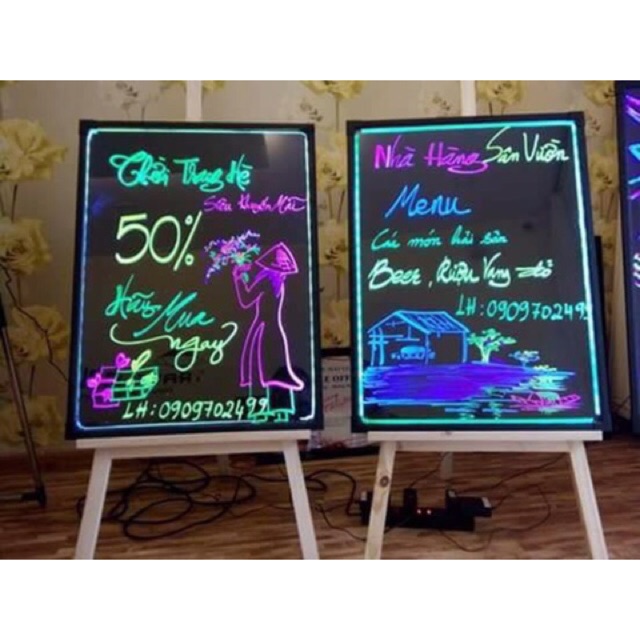 Chào Tháng Hè
Siêu Khuyến Mãi
50%
Hãy Mua
ngay
LH: 0909702499
Nhà Hàng Sân Vườn
Menu
Các món hải sản
Beer, Rượu Vang đỏ
LH: 0909702499